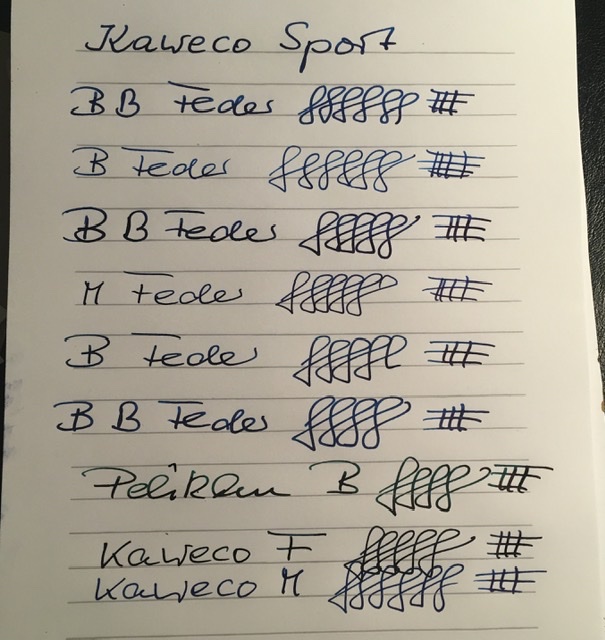 Kaweco Sport
BB Feder
B Feder
BB Feder
M Feder
B Feder
BB Feder
Pelikan B
Kaweco F
Kaweco M